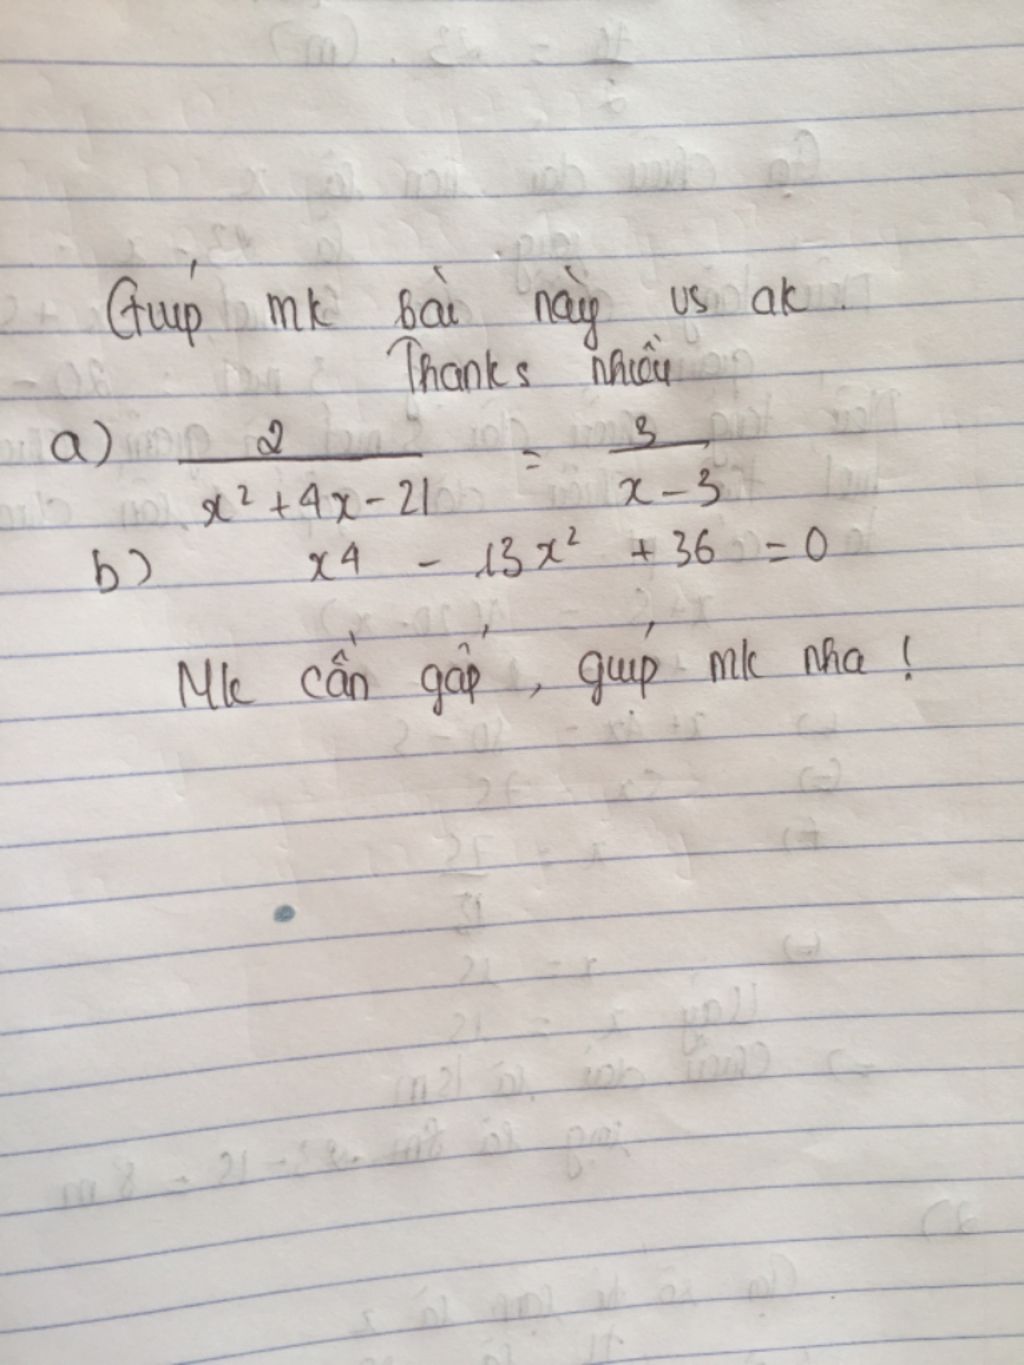 Giúp mk bài này vs ak.
Thanks nhiều
a) 2/(x² + 4x - 21) = 3/(x - 3)
b) x4 - 13x² + 36 = 0
Mk cần gấp, giúp mk nha !